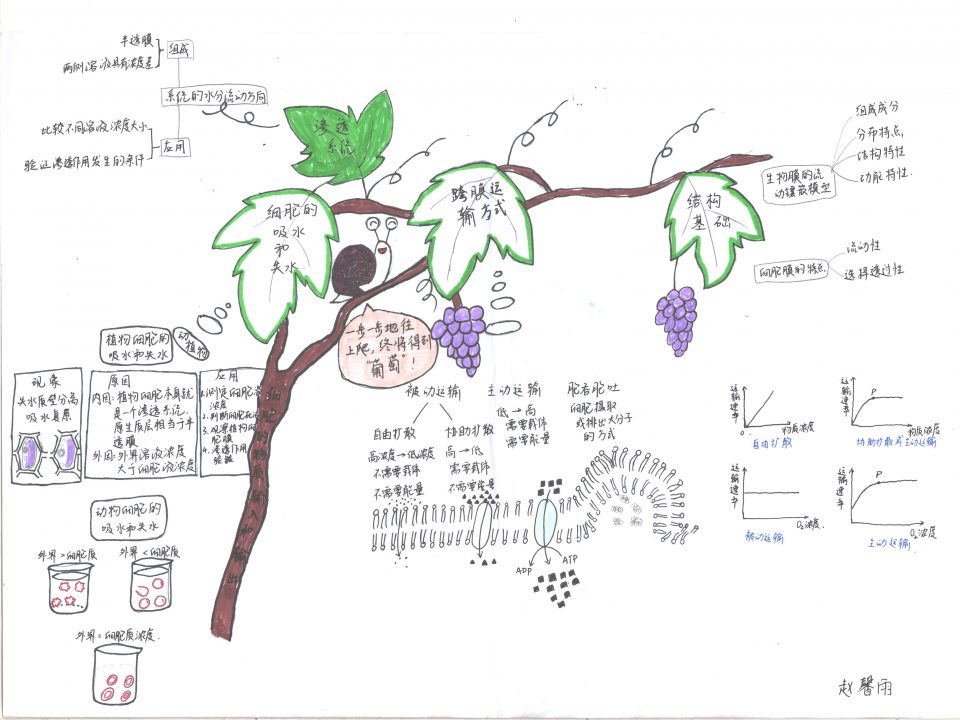 半透膜
两侧溶液具有浓度差
组成
系统的水分流动方向
比较不同溶液浓度大小
验证渗透作用发生的条件
应用
渗透
系统
细胞的
吸水
和
失水
跨膜运
输方式
结构
基础
组成成分
分布特点
结构特性
功能特性
生物膜的流
动镶嵌模型
流动性
选择透过性
细胞膜的特点
一步一步地往
上爬,终将得到
“葡萄”!
细胞的物质输入和输出
植物细胞的
吸水和失水
动植物
现象
失水质壁分离
吸水复原
原因
内因:植物细胞本身就
是一个渗透系统,
原生质层相当于半
透膜
外因:外界溶液浓度
大于细胞液浓度
应用
1.测定细胞液
浓度
2.判断细胞死活
3.观察植物细
胞膜
4.渗透作用
验验
动物细胞的
吸水和失水
外界>细胞质
外界<细胞质
外界=细胞质浓度
被动运输
自由扩散
高浓度→低浓度
不需要载体
不需要能量
协助扩散
高→低
需要载体
不需要能量
主动运输
低→高
需要载体
需要能量
胞吞胞吐
细胞摄取
或排出大分子
的方式
ADP
ATP
运输速率
物质浓度
自由扩散
运输速率
P
物质浓度
协助扩散或主动运输
运输速率
O₂浓度
被动运输
运输速率
P
O₂浓度
主动运输
赵馨雨